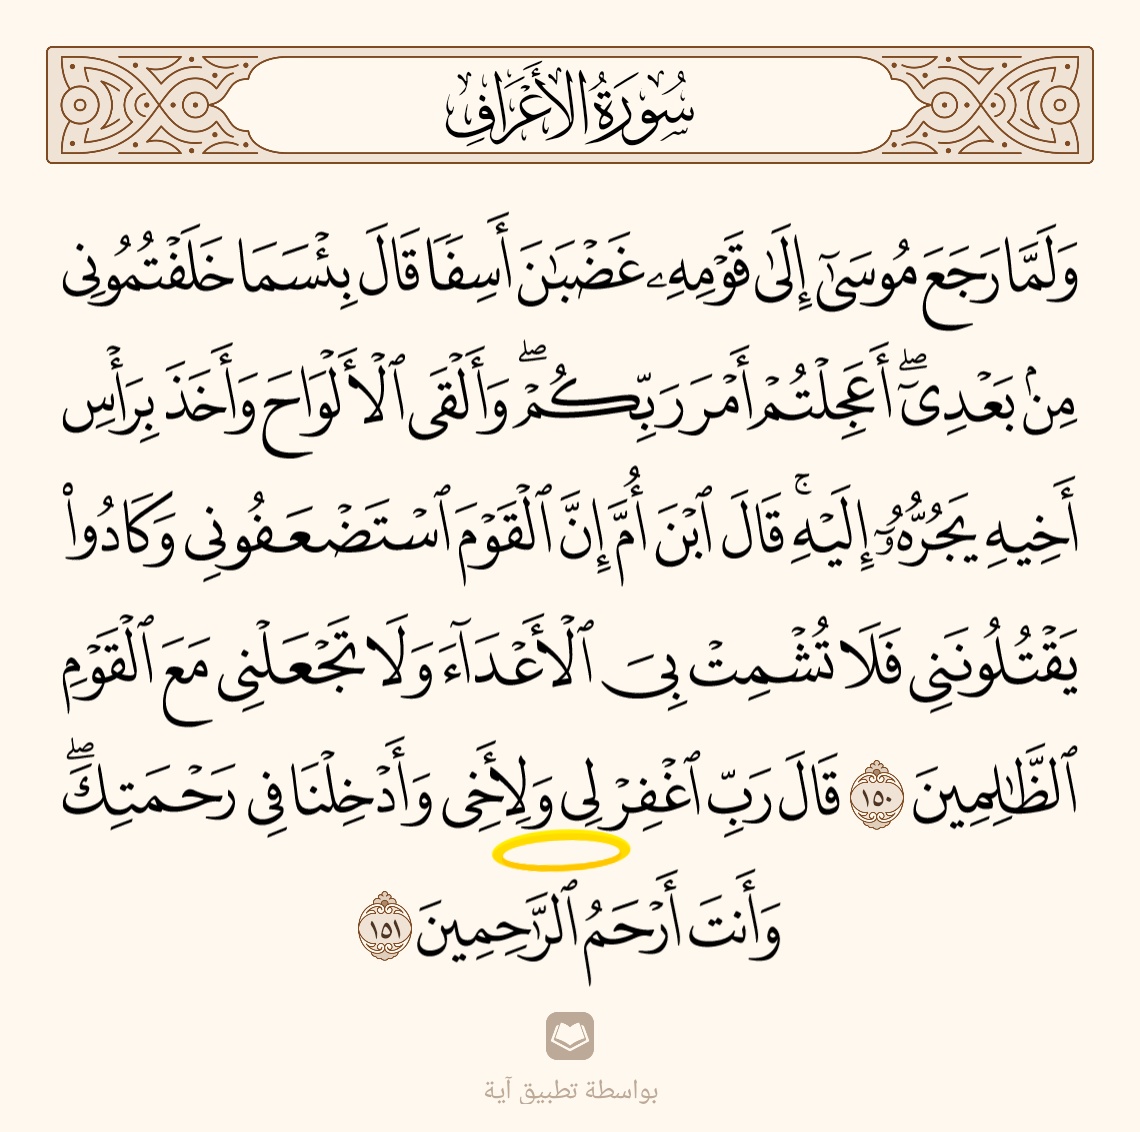 سُورَةُ الأَعْرَافِ
وَلَمَّا رَجَعَ مُوسَىٰٓ إِلَىٰ قَوْمِهِۦ غَضْبَٰنَ أَسِفًا قَالَ بِئْسَمَا خَلَفْتُمُونِى
مِنۢ بَعْدِىٓۖ أَعَجِلْتُمْ أَمْرَ رَبِّكُمْۖ وَأَلْقَى ٱلْأَلْوَاحَ وَأَخَذَ بِرَأْسِ
أَخِيهِ يَجُرُّهُۥٓ إِلَيْهِۚ قَالَ ٱبْنَ أُمَّ إِنَّ ٱلْقَوْمَ ٱسْتَضْعَفُونِى وَكَادُوا۟
يَقْتُلُونَنِى فَلَا تُشْمِتْ بِىَ ٱلْأَعْدَآءَ وَلَا تَجْعَلْنِى مَعَ ٱلْقَوْمِ
ٱلظَّٰلِمِينَ ١٥٠ قَالَ رَبِّ ٱغْفِرْ لِى وَلِأَخِى وَأَدْخِلْنَا فِى رَحْمَتِكَۖ
وَأَنتَ أَرْحَمُ ٱلرَّٰحِمِينَ ١٥١
بواسطة تطبيق آية